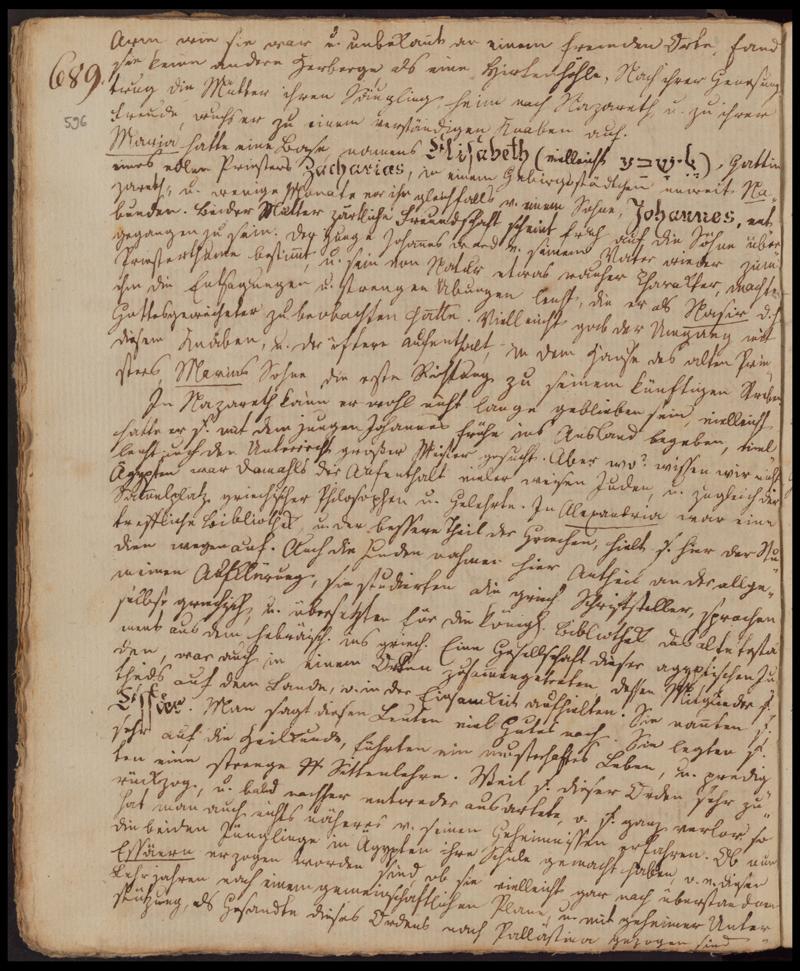 Arm wie sie war u. unbekant an einem fremden Orte, fand
689. sie keine andere Herberge als eine Hirtenhöhle. Nach ihrer Genesung
trug die Mutter ihren Säugling heim nach Nazareth u. zu ihrer
596 Freude, wuchs er zu einem verständigen Knaben auf.
Maria hatte eine Base namens Elisabeth (vielleicht), Gattin
eines edlen Priesters Zacharias, in einem Gebirgsstädtchen unweit Na„
zareth, u. wenige Monate vor ihr gleichfalls v. einem Sohne, Johannes, ent„
bunden. Beider Mütter zärtliche Freundschaft scheint früh auf die Söhne über„
gegangen zu sein. Der junge Johanes ward v. seinem Vater wieder zum
Priesterthume bestimt, u. sein von Natur etwas rauher Charakter, machte
ihm die Entsagungen u. strengen Übungen leicht, die er als Nasir d. h.
Gottesgeweiheter zu beobachten hatte. Vielleicht gab der Umgang mit
diesem Knaben, u. der öftere Aufenthalt, in dem Hause des alten Prie„
sters, Marias Sohne die erste Richtung zu seinem künftigen Streben.
In Nazareth kann er wohl nicht lange geblieben sein, vielleicht
hatte er s. mit dem jungen Johannes frühe ins Ausland begeben, viel„
leicht auch den Unterricht großer Meister gesucht. Aber wo? wissen wir nicht
Ägypten war damahls der Aufenthalt vieler weisen Juden, u. zugleich der
Samelplatz griechischer Philosophen u. Gelehrte. In Alexandria war eine
treffliche Bibliothek, u. der bessere Theil der Griechen, hielt s. hier der Stu„
dien wegen auf. Auch die Juden nahmen hier Antheil an der allge„
meinen Aufklärung, sie studierten die griech. Schriftsteller, sprachen
selbst griechisch, u. übersetzten für die königl. Bibliothek das alte Testa„
ment aus dem hebräisch. ins griech. Eine Gesellschaft dieser ägyptischen Ju„
den, war auch in einem Orden zusamengetreten dessen Mitglieder s.
theils auf dem Lande, o. in der Einsamkeit aufhielten. Sie nanten s.
Essäer. Man sagt diesen Leuten viel Gutes nach. Sie legten s.
sehr auf die Heilkunde, führten ein musterhaftes Leben, u. predig„
ten eine strenge Sittenlehre. Weil s. dieser Orden sehr zu„
rückzog, u. bald nachher entweder ausartete, o. s. ganz verlor, so
hat man auch nichts näheres v. seinen Geheimnissen erfahren. Ob nun
die beiden Jünglinge in Ägypten ihre Schule gemacht haben, o. v. diesen
Essäern erzogen worden sind ob sie vielleicht gar nach überstandenen
Lehrjahren nach einem gemeinschaftlichen Plane, u. mit geheimer Unter„
stützung, als Gesandte dieses Ordens nach Pallästina gezogen sind